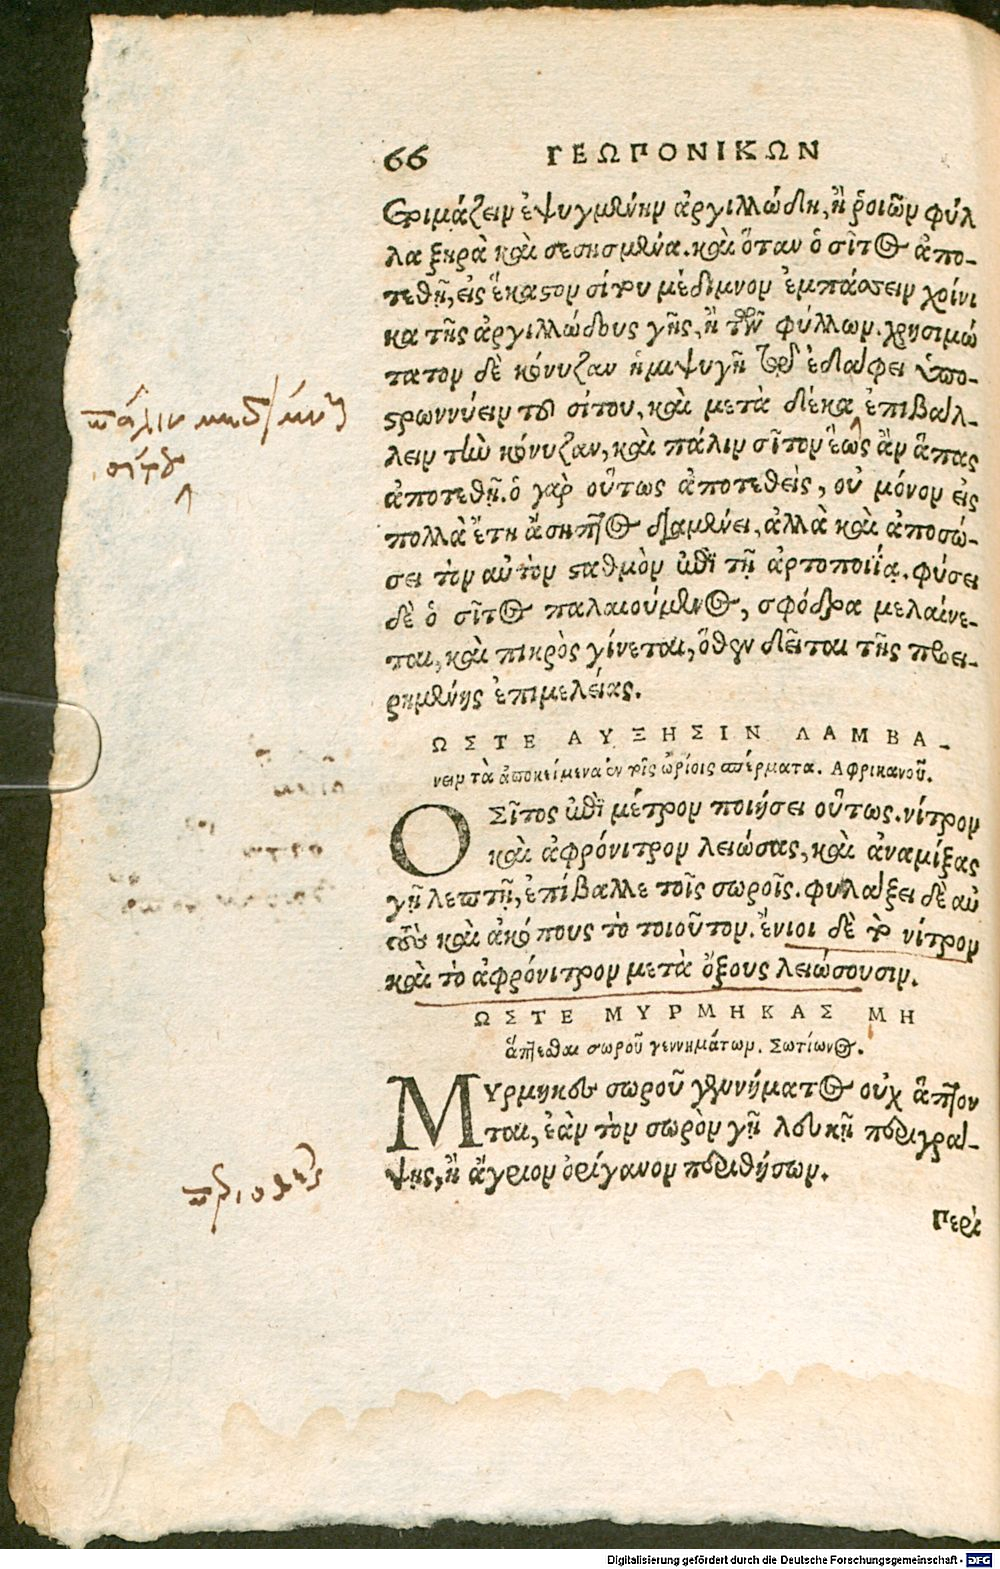 66 ΓΕΩΠΟΝΙΚΩΝ
ἑτοιμάζειν ἐψυγμένην ἀργιλλώδη, ἢ ῥοιῶν φύλ
λα ξηρὰ καὶ σεσησμένα. καὶ ὅταν ὁ σῖτος ἀπο-
τεθῇ, εἰς ἕκαστον σίτου μέδιμνον ἐμπάσσειν χοίνι
κα τῆς ἀργιλλώδους γῆς, ἢ τῶν φύλλων. χρησιμώ
τατον δὲ κόνυζαν ἡμιψυγῆ τῷ ἐδάφει ὑπο-
στρωννύειν τοῦ σίτου, καὶ μετὰ δέκα ἐπιβάλ-
λειν τὴν κόνυζαν, καὶ πάλιν σῖτον ἕως ἂν ἅπας
ἀποτεθῇ. ὁ γὰρ οὕτως ἀποτεθεὶς, οὐ μόνον εἰς
πολλὰ ἔτη ἄσηπτος διαμένει, ἀλλὰ καὶ ἀποσώ-
σει τὸν αὐτὸν σταθμὸν ἐπὶ τῇ ἀρτοποιΐᾳ. φύσει
δὲ ὁ σῖτος παλαιούμενος, σφόδρα μελαίνε-
ται, καὶ πικρὸς γίνεται, ὅθεν δεῖται τῆς προει-
ρημένης ἐπιμελείας.
ΩΣΤΕ ΑΥΞΗΣΙΝ ΛΑΜΒΑ-
νειν τὰ ἀποκείμενα ἐν τοῖς ὡρίοις σπέρματα. Αφρικανοῦ.
Ο Σῖτος ἐπὶ μέτρον ποιήσει οὕτως. νίτρον
καὶ ἀφρόνιτρον λειώσας, καὶ ἀναμίξας
γῇ λεπτῇ, ἐπίβαλλε τοῖς σωροῖς. φυλάξει δὲ αὐ
τοὺς καὶ ἀκόπους τὸ τοιοῦτον. ἔνιοι δὲ τὸ νίτρον
καὶ τὸ ἀφρόνιτρον μετὰ ὄξους λειώσουσιν.
ΩΣΤΕ ΜΥΡΜΗΚΑΣ ΜΗ
ἅπτεσθαι σωροῦ γεννημάτων. Σωτίωνος.
ΜΥρμηκες σωροῦ γεννήματος οὐχ ἅπτον
ται, ἐὰν τὸν σωρὸν γῇ λευκῇ περιγρά-
ψῃς, ἢ ἄγριον ὀρίγανον περιθήσων.
Περὶ
πάλιν
σίτου
Digitalisierung gefördert durch die Deutsche Forschungsgemeinschaft - DFG